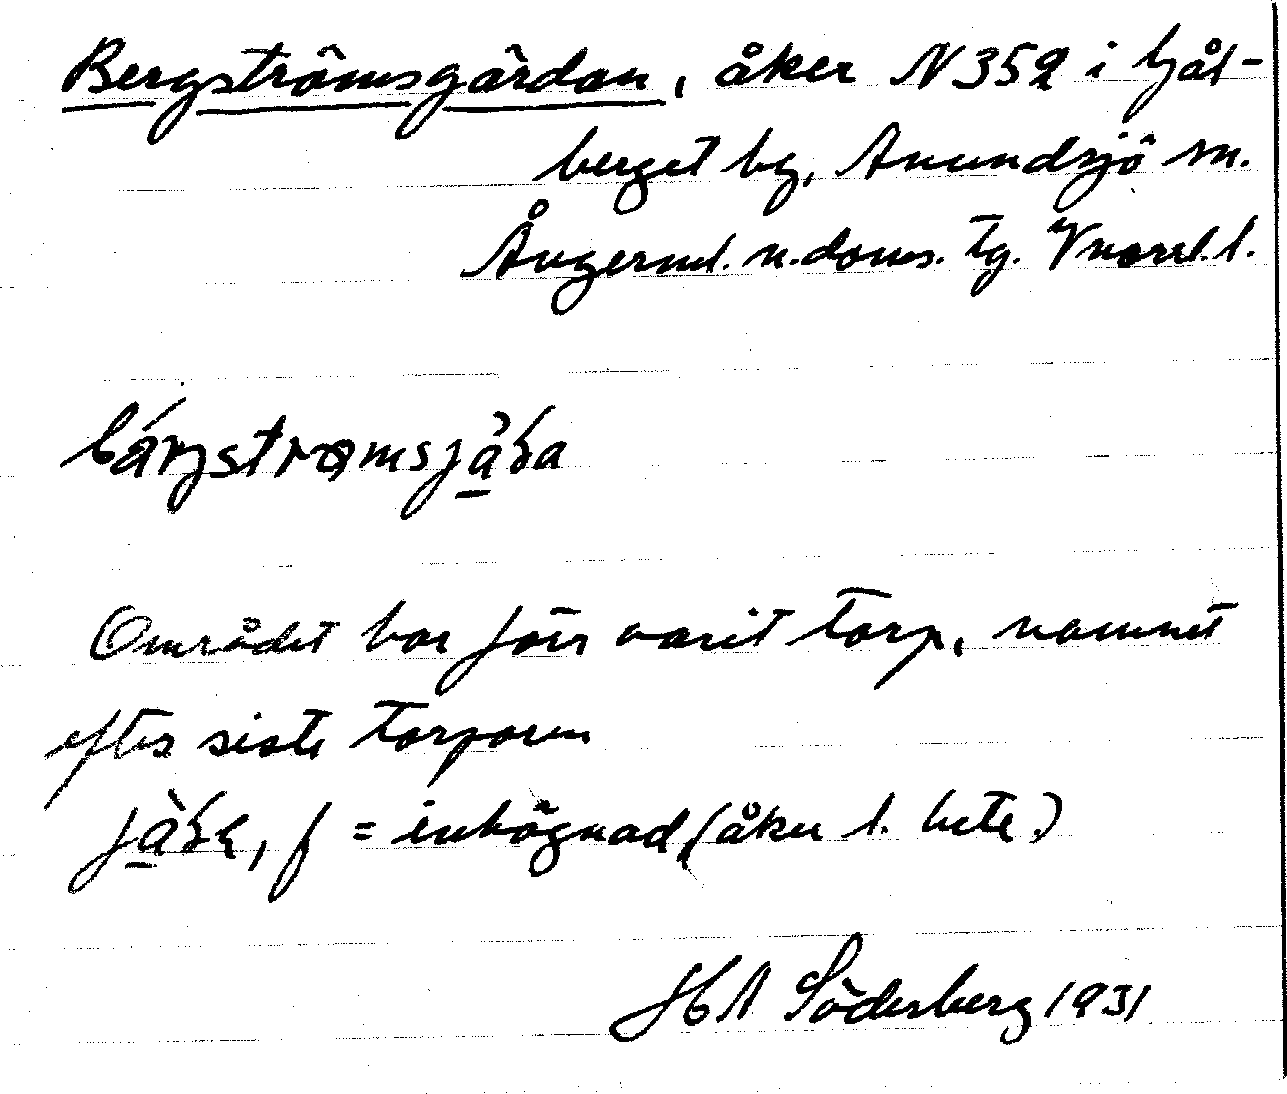 Bergströmsgärdan, åker N 352 i Gål-
berget by, Anundsjö sn.
Ångerml. n. doms. tg. Vnorrl. l.
bárgstrømsjà̱ɽa
Området har förr varit torp, namnet
efter siste torparen
jà̱ɽa, f = inhägnad (åker l. bete.)
H A Söderberg 1931